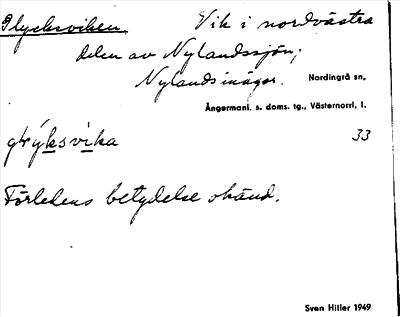 Glycksviken. Vik i nordvästra
delen av Nylandssjön;
Nylands inägor. Nordingrå sn.
Ångermanl. s. doms. tg., Västernorrl. l.
33
Förledens betydelse okänd.
Sven Hiller 1949